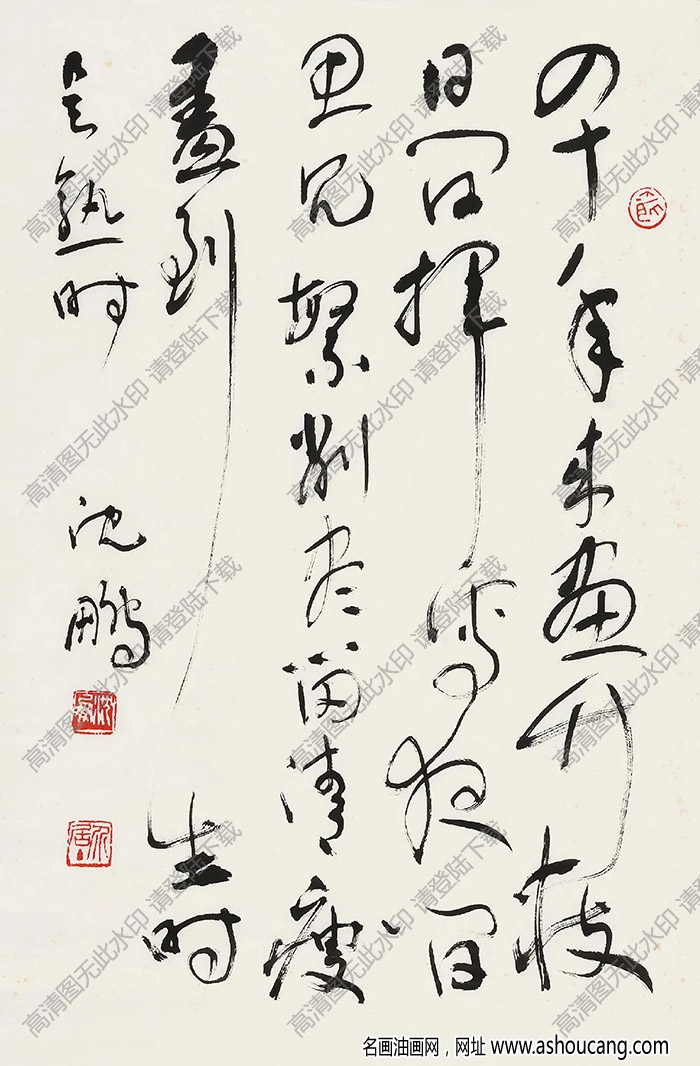 四十年来畫竹枝
日间挥写夜间
思冗繁削尽留清瘦
畫到生时
是熟时
沈鹏
高清图无此水印 请登陆下载
名画油画网，网址 www.ashoucang.com